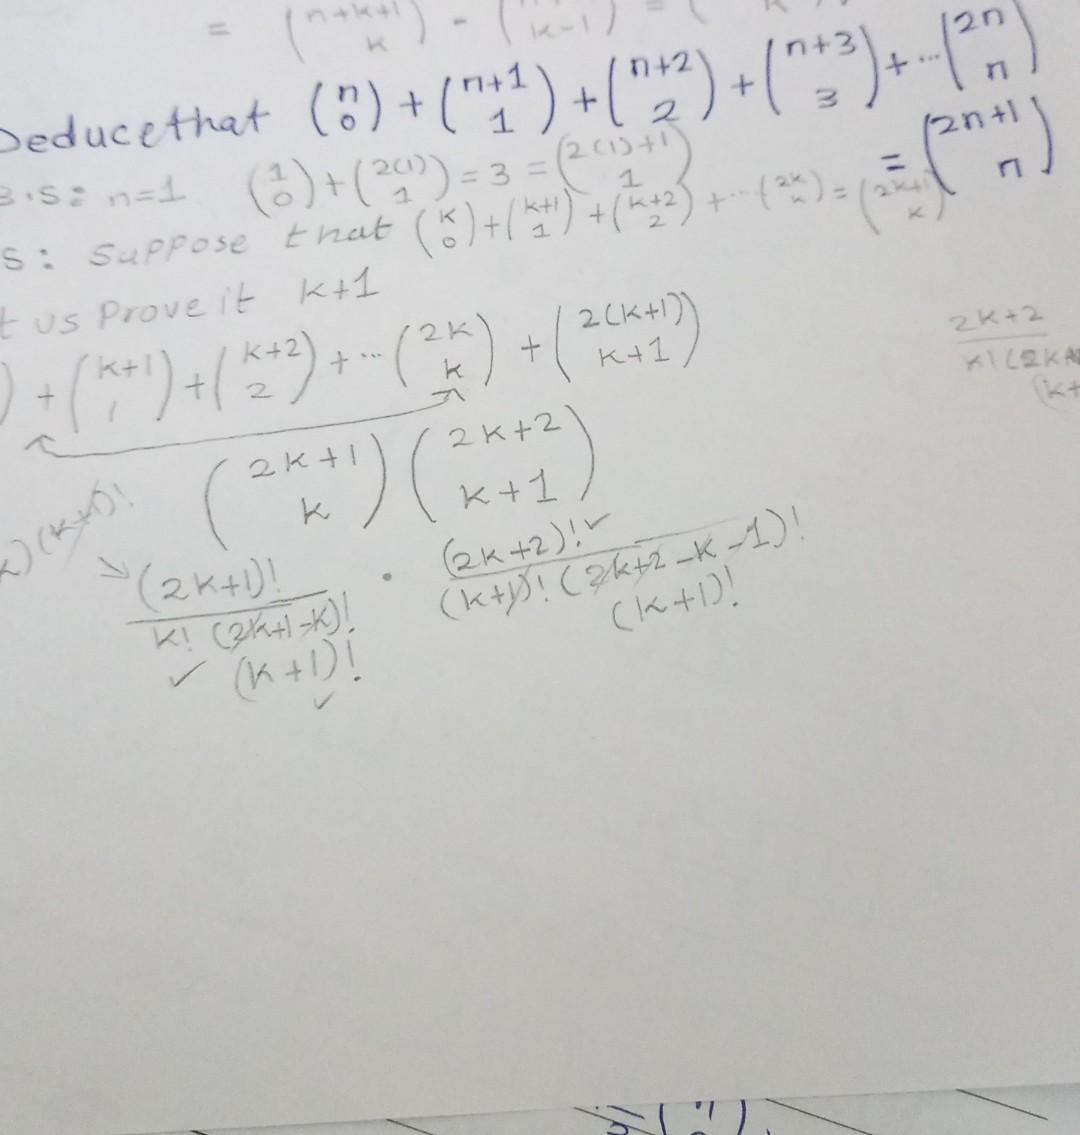 = (n+k+1 k) - ( k-1) = ( k
Deduce that (n 0) + (n+1 1) + (n+2 2) + (n+3 3) + ... (2n n)
= (2n+1 n)
B.S: n=1 (1 0) + (2(1) 1) = 3 = (2(1)+1 1)
S: Suppose that (k 0) + (k+1 1) + (k+2 2) + ... (2k k) = (2k+1 k)
t us Prove it k+1
) + (k+1 1) + (k+2 2) + ... (2k k) + (2(k+1) k+1)
2k+2
k! (2k
(k+
(2k+1 k) (2k+2 k+1)
) (k+1)!
(2k+1)! / k! (2k+1-k)! . (2k+2)! / (k+1)! (2k+2-k-1)!
(k+1)! (k+1)!